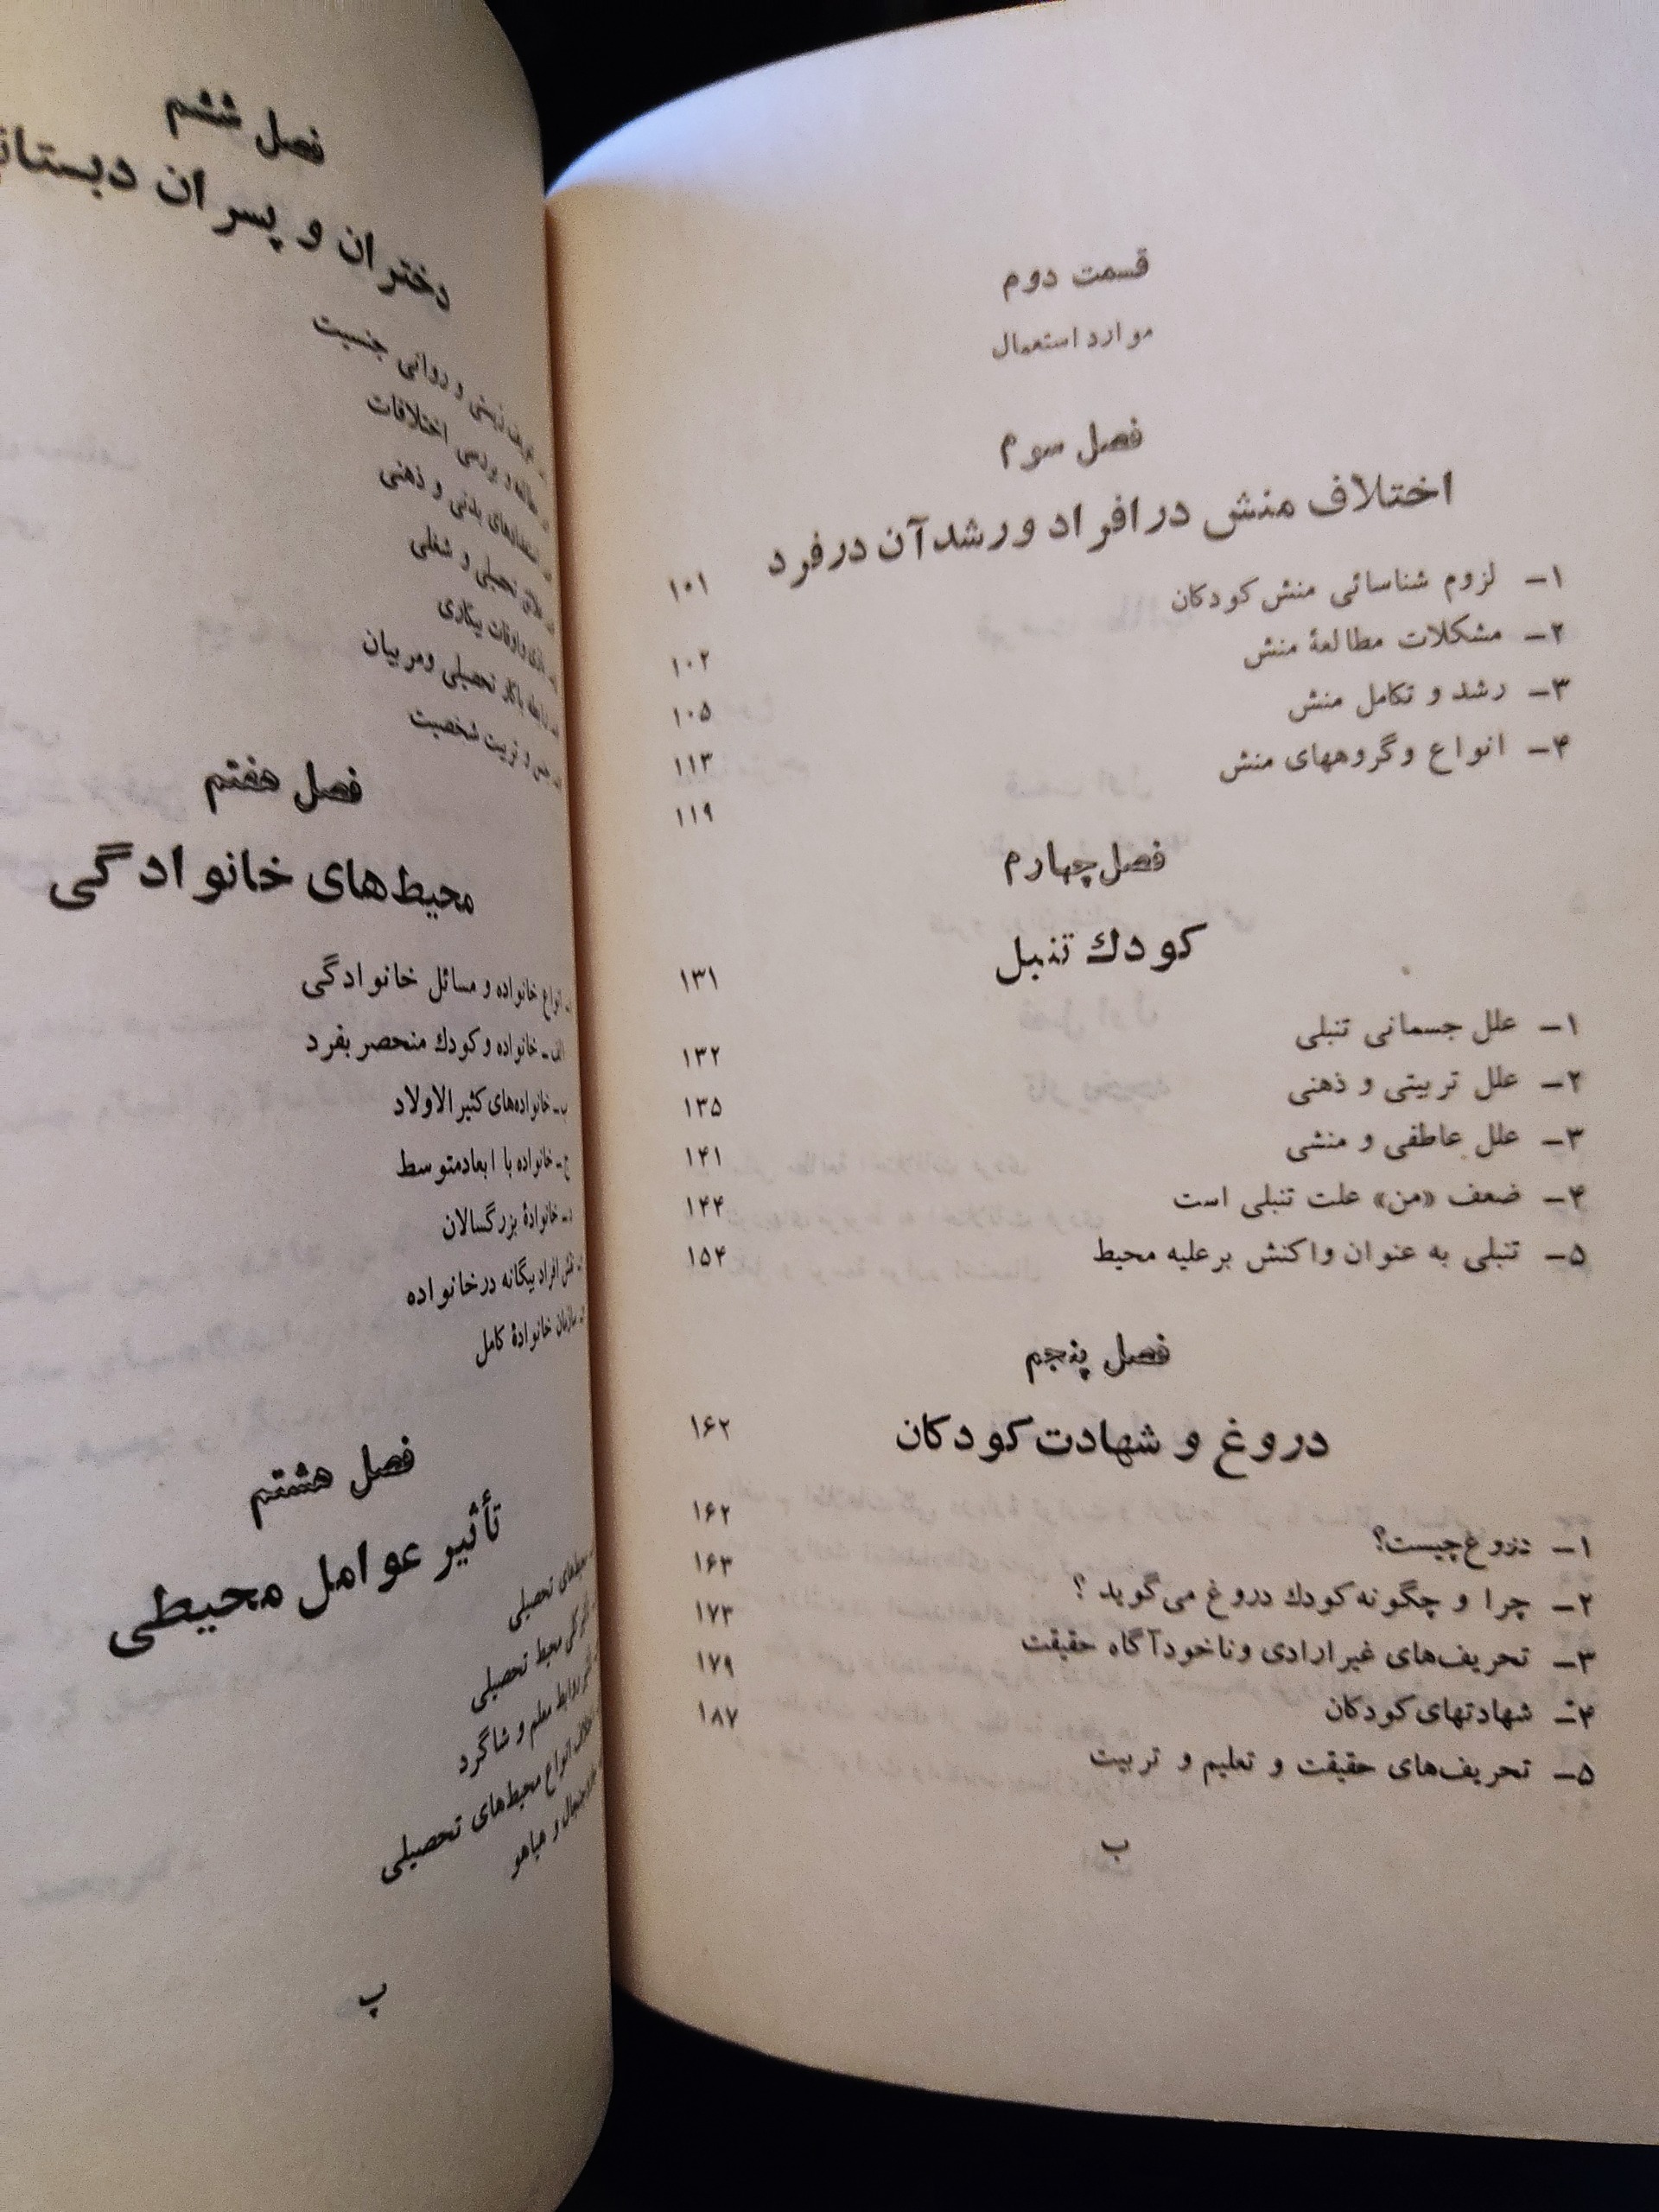 قسمت دوم
موارد استعمال
فصل سوم
اختلاف منش در افراد و رشد آن در فرد
۱۰۱
۱ـ لزوم شناسائی منش کودکان
۱۰۲
۲ـ مشکلات مطالعهٔ منش
۱۰۵
۳ـ رشد و تکامل منش
۱۱۳
۴ـ انواع و گروههای منش
۱۱۹
فصل چهارم
کودك تنبل
۱۳۱
۱ـ علل جسمانی تنبلی
۱۳۲
۲ـ علل تربیتی و ذهنی
۱۳۵
۳ـ علل عاطفی و منشی
۱۴۱
۴ـ ضعف «من» علت تنبلی است
۱۴۴
۵ـ تنبلی به عنوان واکنش برعلیه محیط
۱۵۴
فصل پنجم
دروغ و شهادت کودکان
۱۶۲
۱ـ دروغ چیست؟
۱۶۲
۲ـ چرا و چگونه کودك دروغ می‌گوید ؟
۱۶۳
۳ـ تحریف‌های غیرارادی و ناخودآگاه حقیقت
۱۷۳
۴ـ شهادتهای کودکان
۱۷۹
۵ـ تحریف‌های حقیقت و تعلیم و تربیت
۱۸۷
ب
فصل ششم
دختران و پسران
زیستی و روانی جنسیت
مطالعه و بررسی اختلافات
استعدادهای بدنی و ذهنی
علائق تحصیلی و شغلی
بازی و اوقات بیکاری
رابطه با کار تحصیلی و مربیان
جنس و تربیت شخصیت
فصل هفتم
محیط‌های خانوادگی
انواع خانواده و مسائل خانوادگی
الف ـ خانواده و کودك منحصر بفرد
ب ـ خانواده‌های کثیرالاولاد
ج ـ خانواده با ابعاد متوسط
د ـ خانوادهٔ بزرگسالان
نقش افراد بیگانه در خانواده
سازمان خانوادهٔ کامل
فصل هشتم
تأثیر عوامل محیطی
محیطهای تحصیلی
تأثیر کلی محیط تحصیلی
تأثیر روابط معلم و شاگرد
اختلاف انواع محیط‌های تحصیلی
جنجال و هیاهو
پ